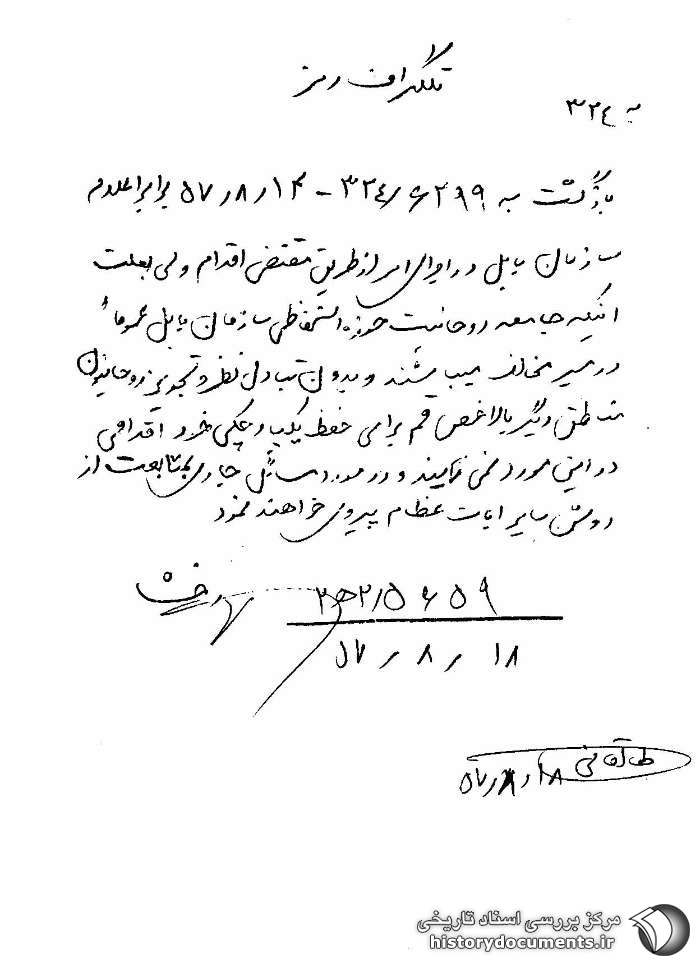 تلگراف رمز
به ۳۲۴
بازگشت به ۳۲۴/۶۲۹۹ - ۵۷/۸/۱۴ برابر اعلام
سازمان بابل در اجرای امر از طریق مقتضی اقدام ولی بعلت
اینکه جامعه روحانیت حوزه استحفاظی سازمان بابل عموماً
در مسیر مخالف میباشند و بدون تبادل نظر و تجویز روحانیون
مناطق دیگر بالاخص قم برای حفظ یکپارچگی خود اقدامی
در این مورد نمی نمایند و در مورد مسائل جاری بمتابعت از
روش سایر ایات عظام پیروی خواهند نمود
۲ه‍۲/۵۶۵۹
۵۷/۸/۱۸
طالقانی
۵۷/۸/۱۸
مرکز بررسی اسناد تاریخی
historydocuments.ir